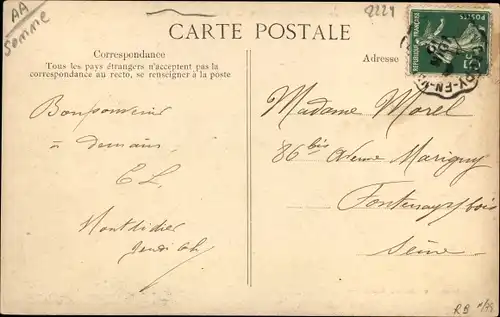 AA
Somme
2224
CARTE POSTALE
Correspondance
Tous les pays étrangers n'acceptent pas la
correspondance au recto, se renseigner à la poste
Adresse
POSTES
REPUBLIQUE FRANÇAISE
5
Bonsouvenir
à demain
CL
Montdidier
Jeudi 6h
Madame Morel
86 bis Avenue Marigny
Fontenay s/ bois
Seine
RB